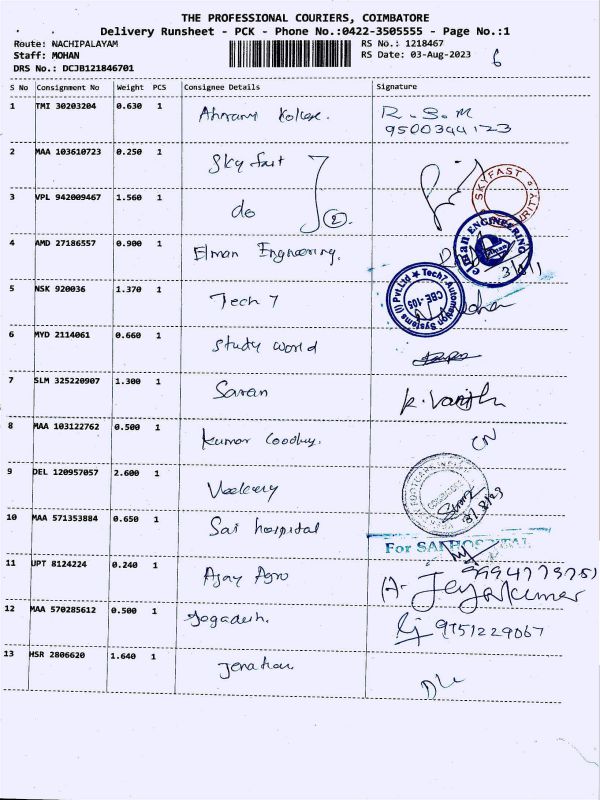 THE PROFESSIONAL COURIERS, COIMBATORE
Delivery Runsheet - PCK - Phone No.:0422-3505555 - Page No.:1
Route: NACHIPALAYAM RS No.: 1218467
Staff: MOHAN RS Date: 03-Aug-2023 6
DRS No.: DCJB121846701
S No Consignment No Weight PCS Consignee Details Signature
1 TMI 30203204 0.630 1 R. S. M
9500344123
2 MAA 103610723 0.250 1 Sky fast
SKYFAST
3 VPL 942009467 1.560 1 do 2
4 AMD 27186557 0.900 1 Elman Engneering.
elman ENGINEERING
5 NSK 920036 1.370 1 Tech 7
Tech7 Automation Systems (I) Pvt.Ltd CBE-105
6 MYD 2114061 0.660 1 Study world
7 SLM 325220907 1.300 1 Saran
8 MAA 103122762 0.500 1 kumar CN
9 DEL 120957057 2.600 1
10 MAA 571353884 0.650 1 Sai hospital
For SAI HOSPITAL
11 UPT 8124224 0.240 1 Ajay Agro
A. Jeyakumar
12 MAA 570285612 0.500 1 9151229067
13 HSR 2806620 1.640 1